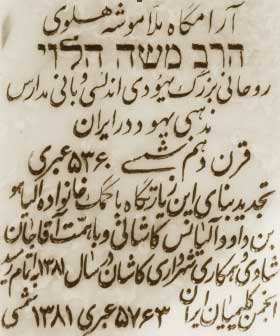 آرامگاه ملا موشه هلوی
הרב משה הלוי
روحانی بزرگ یهودی اندلسی و بانی مدارس
مذهبی یهود در ایران
قرن دهم شمسی ۵۳۶۰ عبری
تجدید بنای این زیارتگاه با کمک خانواده الیاهو
بن داوود آلیانس کاشانی و با همت آقاجان
شادی و همکاری شهرداری کاشان در سال ۱۳۸۱ به اتمام رسید
انجمن کلیمیان ایران
۵۷۶۳ عبری ۱۳۸۱ شمسی